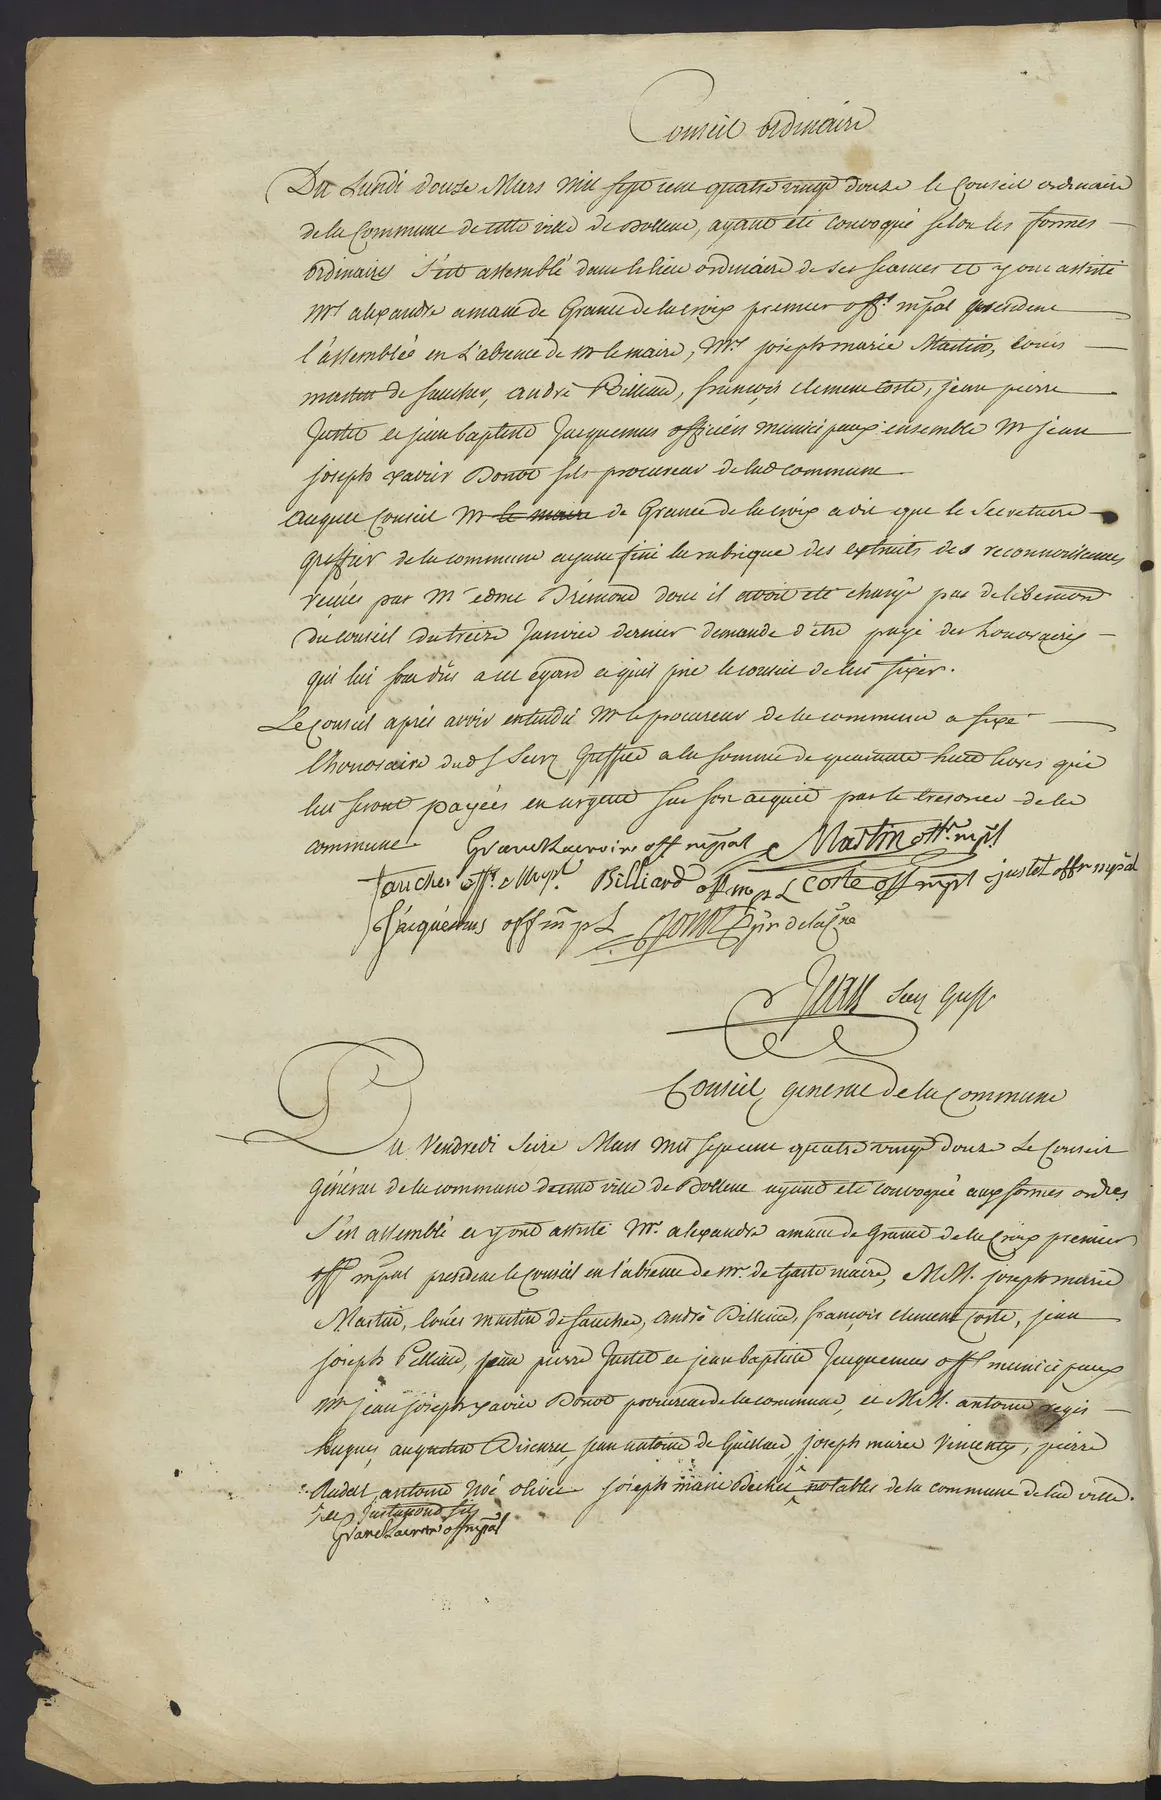 Conseil ordinaire
Du Lundi douze Mars mil sept cent quatre vingt douze le Conseil ordinaire
de la Commune de cette ville de Bollene, ayant été convoqué selon les formes
ordinaires s'est assemblé dans le lieu ordinaire de ses seances et y ont assisté
Mrs alexandre amant de Granet de lacroix premier offr. mpal president
l'assemblée en L'absence de Mr le maire, Mrs joseph marie Martin, loüis
martin de faucher, andré Billiard, françois clement Coste, jean pierre
Justet et jean baptiste Jacquemus officiers municipaux ensemble Mr jean
joseph xavier Bonot fils procureur de lad commune
auquel Conseil Mr le maire de Granet de lacroix a dit que le Secretaire
greffier de la commune ayant fini la rubrique des extraits des reconnoissances
reçües par Me edme Brémond dont il avoit été chargé par deliberation
du conseil du treize Janvier dernier demande d'être payé des honoraires
qui lui sont dûs a cet egard et qu'il prie le conseil de lui fixer.
Le Conseil après avoir entendu Mr le procureur de la commune a fixé
l'honoraire dud S Secre Greffier a la somme de quarante huit livres qui
lui seront payées en argent sur son acquit par le tresorier de la
commune. Granet Lacroix off mpal Martin offr. mpl
faucher offr. Mupl. Billiard off mpL Coste off mpl justet offr mpal
Jacquémus off mpL Bonot pr de la Cne
Jean Secre Greff
Conseil general de la Commune
Du Vendredi seize Mars mil sept cent quatre vingt douze Le Conseil
général de la commune de cette ville de Bollene ayant été convoqué aux formes ordres
s'est assemblé et y ont assisté Mr. alexandre amant de Granet de la Croix premier
off mpal president le Conseil en l'absence de Mr. de Gaste maire, MM. joseph marie
Martin, loüis martin de faucher, andré Billiard, françois clement Coste, jean
joseph Pelliard, jean pierre Justet et jean baptiste Jacquemus offrs municipaux
Mr jean joseph xavier Bonot procureur de la commune, et MM. antoine regis
hugues, augustin Biscarrel, jean antoine de Guilland, joseph marie Vincenty, pierre
Audat, antoine Noé olivier joséph marie Bechet notables de la commune de lad ville.
et Justamond fils
Granet Lacroix off mpal